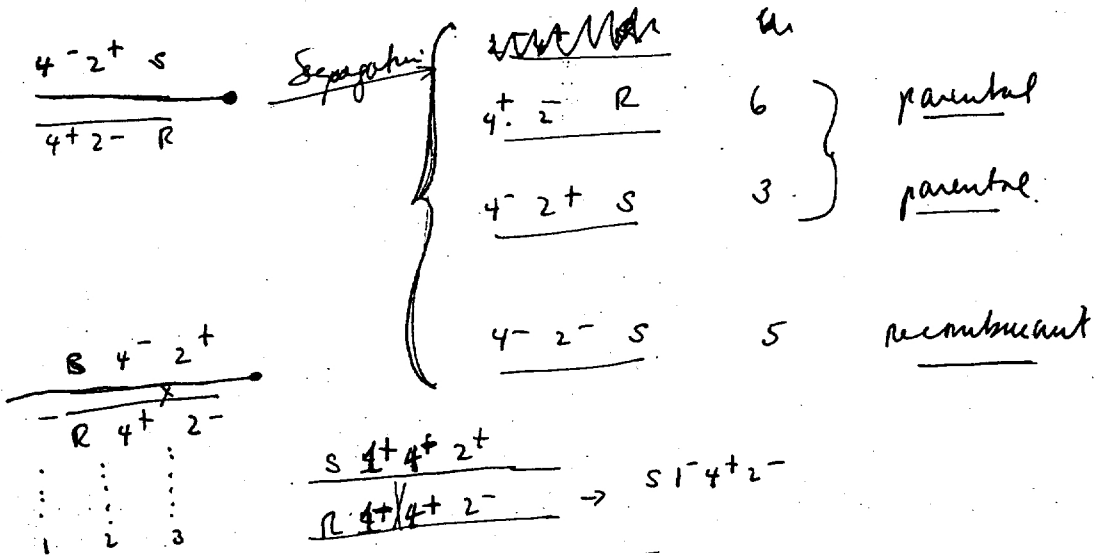 4⁻ 2⁺ S
4⁺ 2⁻ R
Segregation
4⁺ 2⁻ R 6 parental
4⁻ 2⁺ S 3 parental.
4⁻ 2⁻ S 5 recombinant
4⁻ 2⁺
R 4⁺ 2⁻
1 2 3
S 4⁺ 2⁺
R 4⁺ 2⁻ → S 1⁻ 4⁺ 2⁻